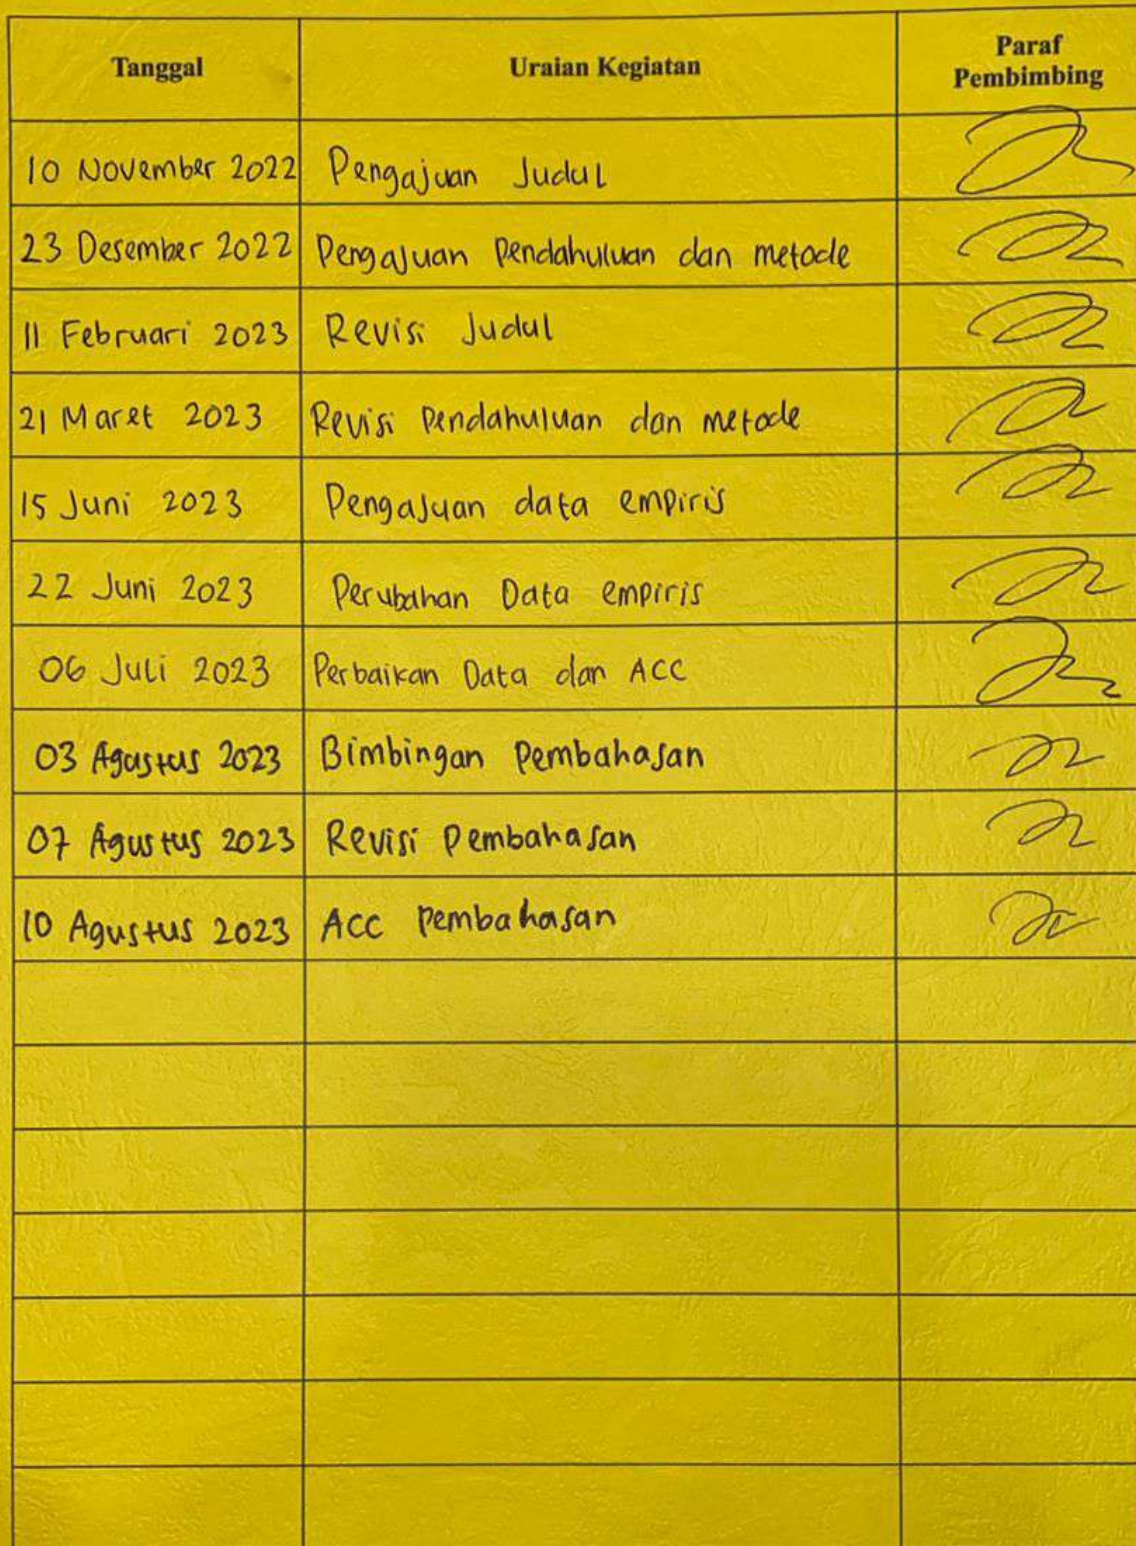 Tanggal Uraian Kegiatan Paraf
Pembimbing
10 November 2022 Pengajuan Judul
23 Desember 2022 Pengajuan Pendahuluan dan metode
11 Februari 2023 Revisi Judul
21 Maret 2023 Revisi Pendahuluan dan metode
15 Juni 2023 Pengajuan data empiris
22 Juni 2023 Perubahan Data empiris
06 Juli 2023 Perbaikan Data dan ACC
03 Agustus 2023 Bimbingan Pembahasan
07 Agustus 2023 Revisi Pembahasan
10 Agustus 2023 ACC Pembahasan